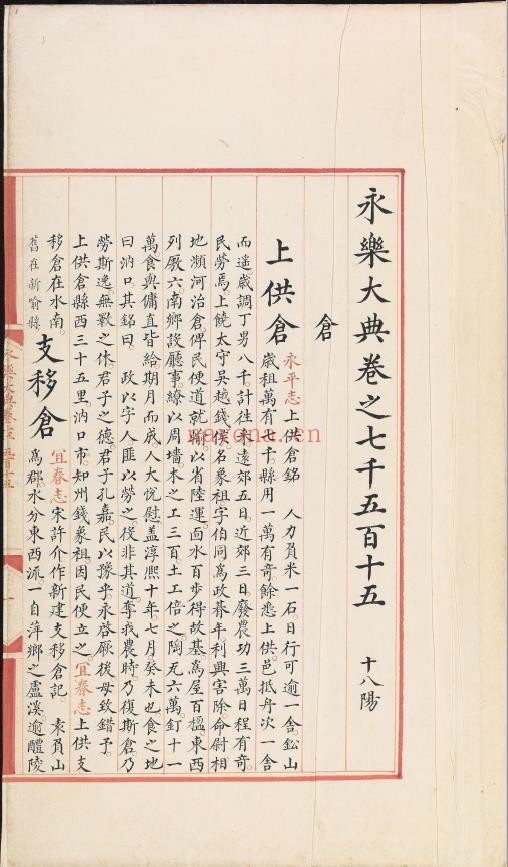 永樂大典卷之七千五百十五　十八陽
倉
上供倉 永平志上供倉銘　人力負米一石日行可逾一舍鈆山
歲租萬有七千縣用一萬有奇餘悉上供邑抵舟次一舍
而遥歲調丁男八千計往来遠郊五日近郊三日廢農功三萬日程有奇
民勞焉上饒太守吳越錢侯名象祖字伯同為政朞年利興害除命尉相
地瀕河治倉俾民便道就輸以省陸運面水百歩得故基為屋百楹東西
列厫六南鄉設㕔事繚以周墻木之工三百土工倍之陶瓦六萬釘十一
萬食輿傭直皆給期月而成人大悦慰盖淳熈十年七月癸未也食之地
曰汭口其銘曰　政以字人匪以勞之役非其道奪我農時乃復斯倉乃
勞斯逸無斁之休君子之德君子孔嘉民以豫乎永啓厥後毋致錯予
上供倉縣西三十五里汭口市知州錢象祖因民便立之宜春志上供支
移倉在水南
舊在新喻縣 支移倉 宜春志宋許介作新建支移倉記　袁負山
為郡水分東西流一自萍鄉之盧溪逾醴陵